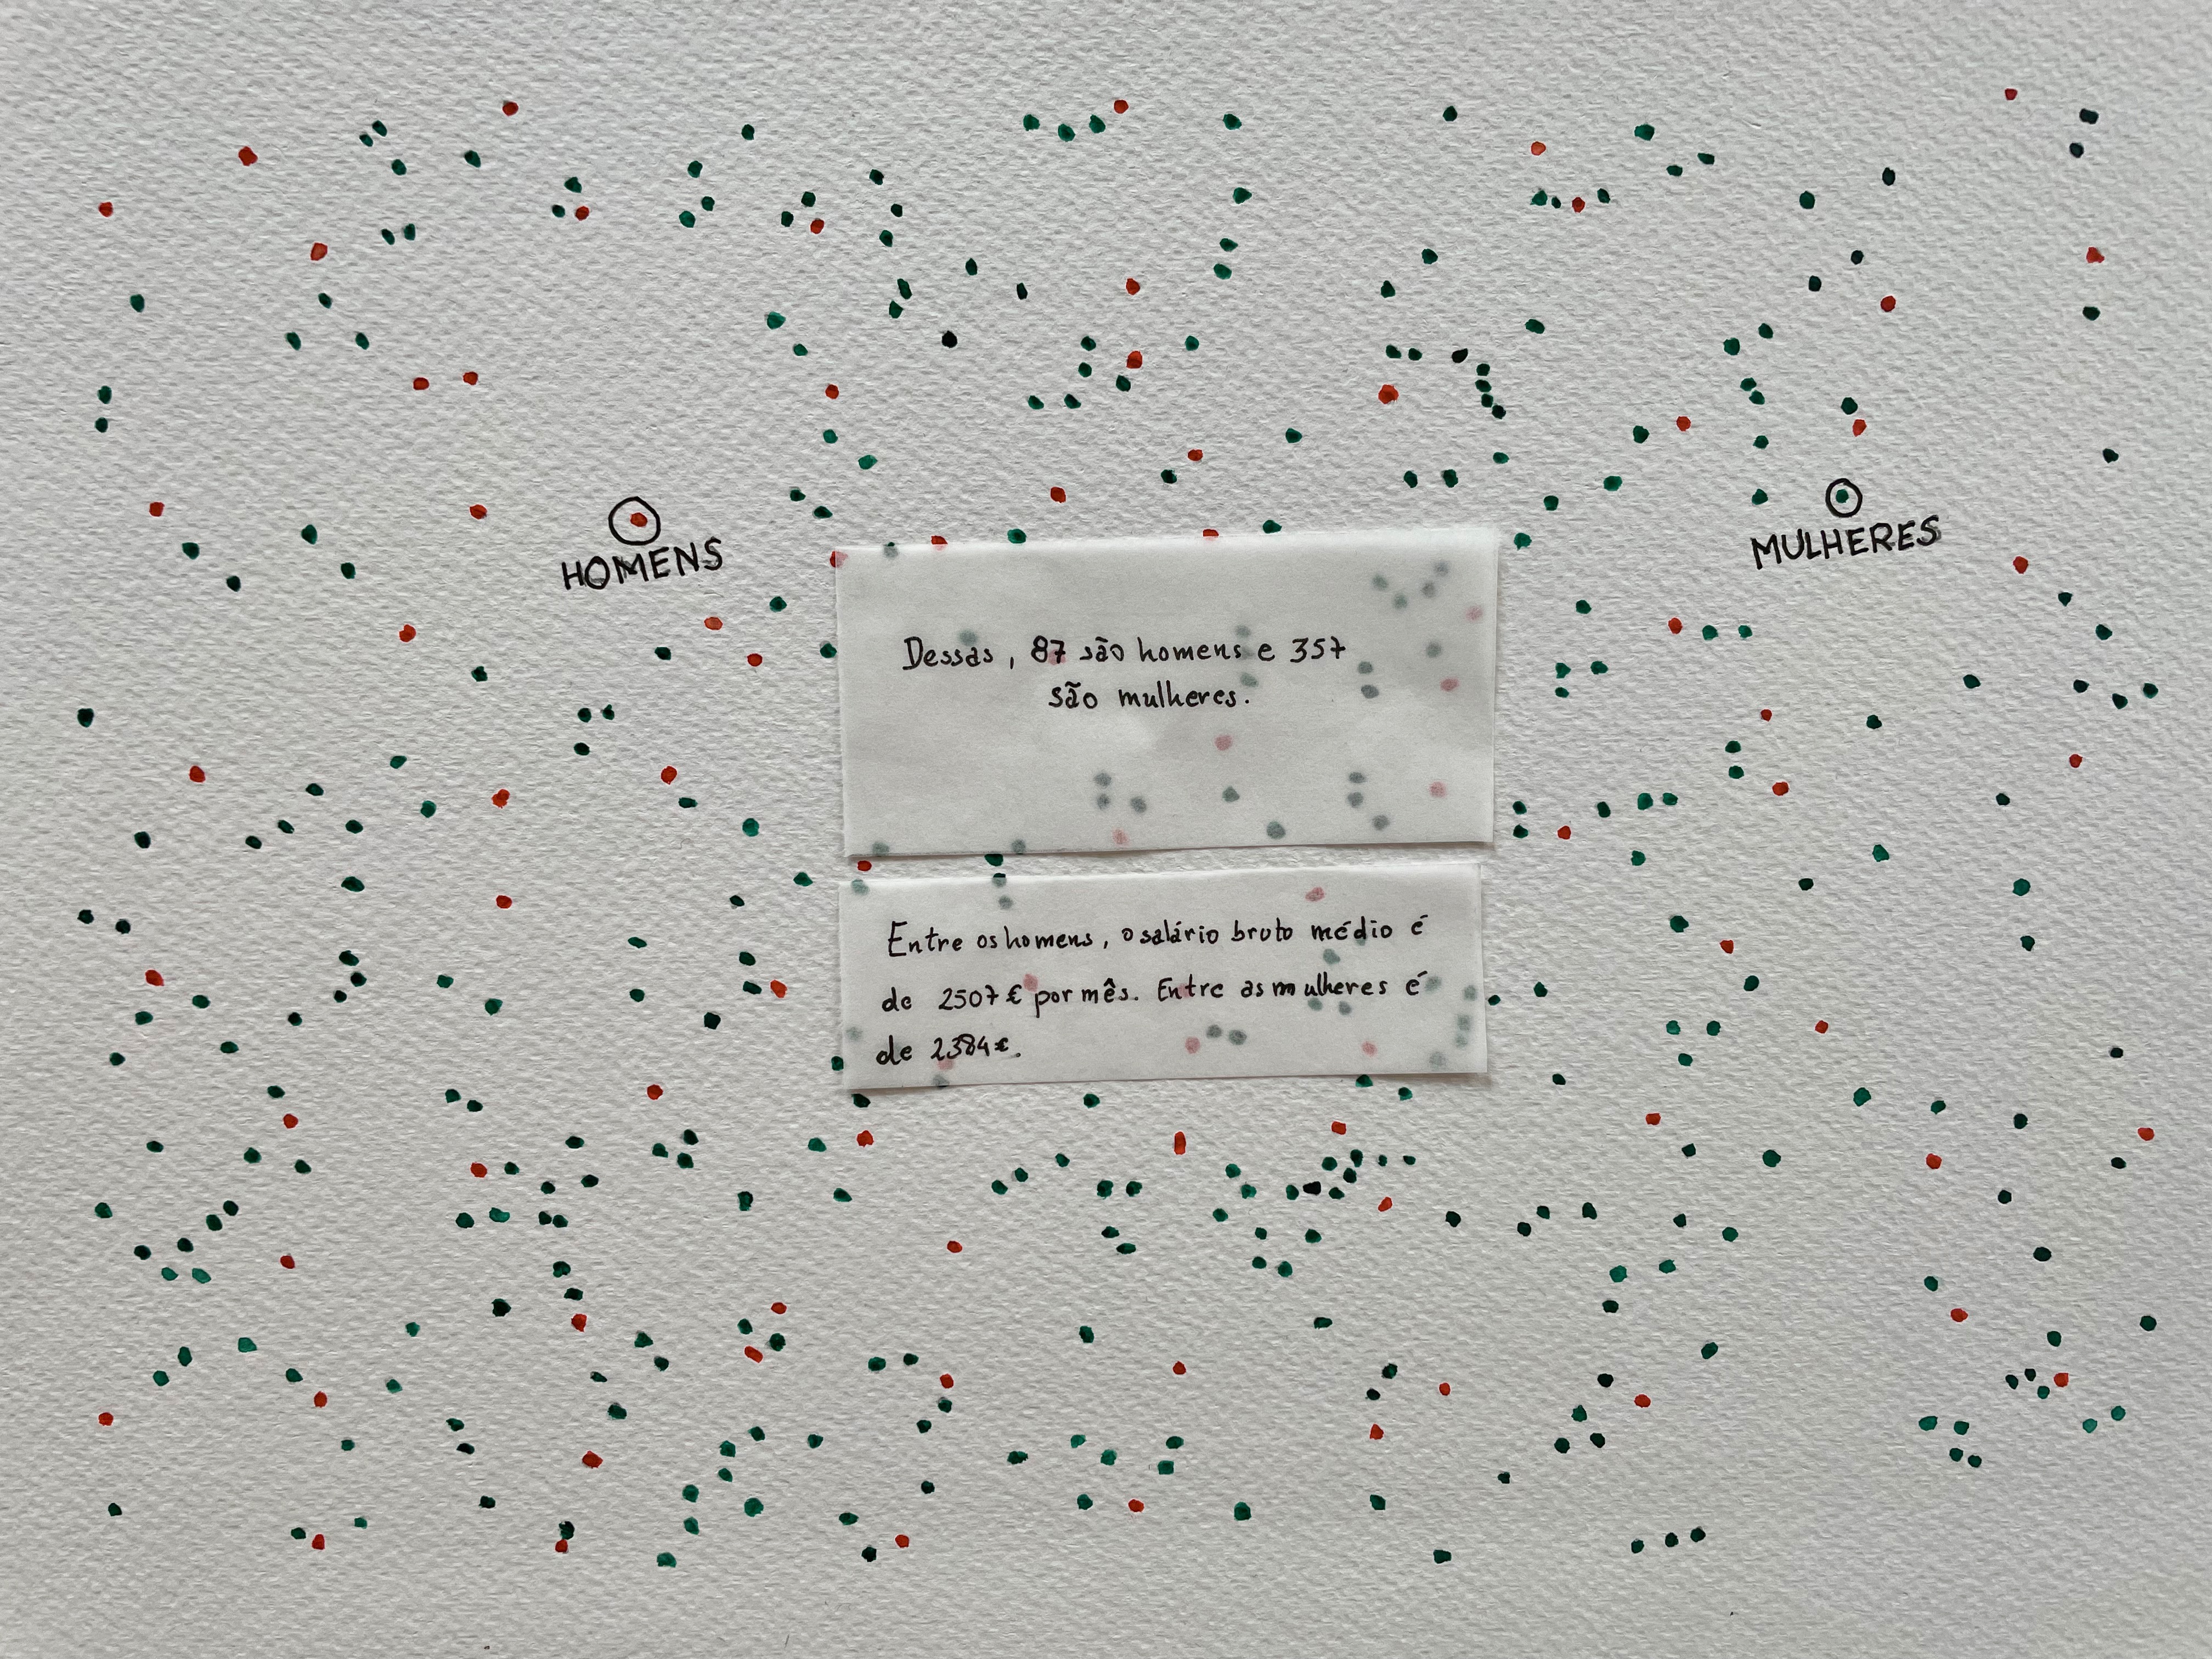 HOMENS
MULHERES
Dessas, 87 são homens e 357
são mulheres.
Entre os homens, o salário bruto médio é
de 2507 € por mês. Entre as mulheres é
de 2384 €.